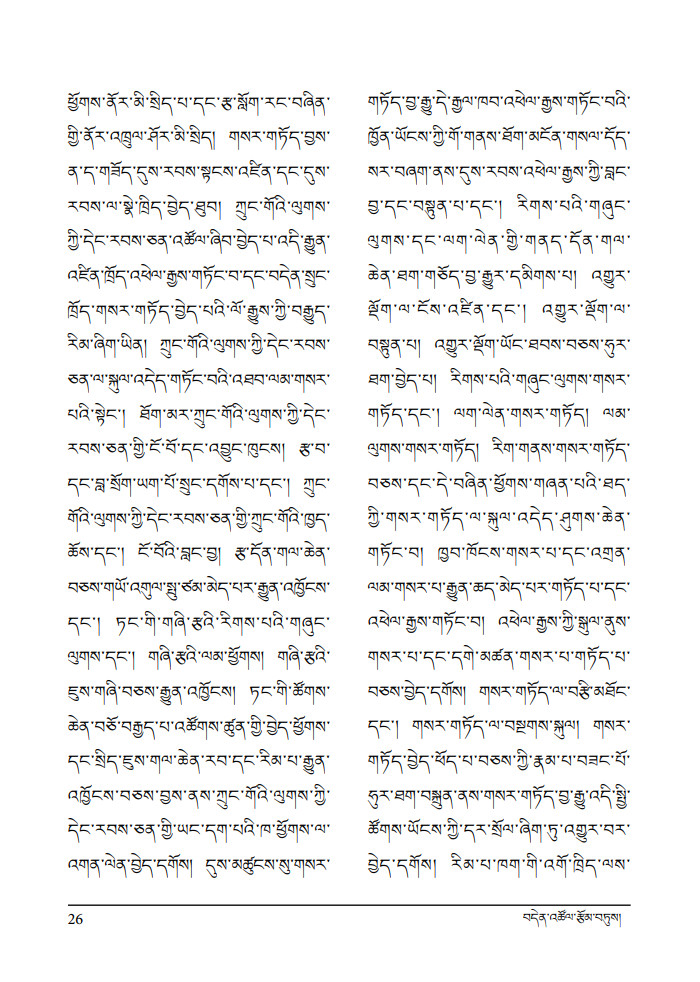 ཕྱོགས་ནོར་མི་སྲིད་པ་དང་རྩ་སློག་རང་བཞིན་
གྱི་ནོར་འཁྲུལ་ཤོར་མི་སྲིད། གསར་གཏོད་བྱས་
ན་ད་གཟོད་དུས་རབས་སྟངས་འཛིན་དང་དུས་
རབས་ལ་སྣེ་ཁྲིད་བྱེད་ཐུབ། ཀྲུང་གོའི་ལུགས་
ཀྱི་དེང་རབས་ཅན་འཚོལ་ཞིབ་བྱེད་པ་འདི་རྒྱུན་
འཛིན་ཁྲོད་འཕེལ་རྒྱས་གཏོང་བ་དང་བདེན་སྲུང་
ཁྲོད་གསར་གཏོད་བྱེད་པའི་ལོ་རྒྱུས་ཀྱི་བརྒྱུད་
རིམ་ཞིག་ཡིན། ཀྲུང་གོའི་ལུགས་ཀྱི་དེང་རབས་
ཅན་ལ་སྐུལ་འདེད་གཏོང་བའི་འཐབ་ལམ་གསར་
པའི་སྟེང་། ཐོག་མར་ཀྲུང་གོའི་ལུགས་ཀྱི་དེང་
རབས་ཅན་གྱི་ངོ་བོ་དང་འབྱུང་ཁུངས། རྩ་བ་
དང་བླ་སྲོག་ཡག་པོ་སྲུང་དགོས་པ་དང་། ཀྲུང་
གོའི་ལུགས་ཀྱི་དེང་རབས་ཅན་གྱི་ཀྲུང་གོའི་ཁྱད་
ཆོས་དང་། ངོ་བོའི་བླང་བྱ། རྩ་དོན་གལ་ཆེན་
བཅས་གཡོ་འགུལ་སྤུ་ཙམ་མེད་པར་རྒྱུན་འཁྱོངས་
དང་། ཏང་གི་གཞི་རྩའི་རིགས་པའི་གཞུང་
ལུགས་དང་། གཞི་རྩའི་ལམ་ཕྱོགས། གཞི་རྩའི་
ཇུས་གཞི་བཅས་རྒྱུན་འཁྱོངས། ཏང་གི་ཚོགས་
ཆེན་བཅོ་བརྒྱད་པ་འཚོགས་ཚུན་གྱི་བྱེད་ཕྱོགས་
དང་སྲིད་ཇུས་གལ་ཆེན་རབ་དང་རིམ་པ་རྒྱུན་
འཁྱོངས་བཅས་བྱས་ནས་ཀྲུང་གོའི་ལུགས་ཀྱི་
དེང་རབས་ཅན་གྱི་ཡང་དག་པའི་ཁ་ཕྱོགས་ལ་
འགན་ལེན་བྱེད་དགོས། དུས་མཚུངས་སུ་གསར་
གཏོད་བྱ་རྒྱུ་དེ་རྒྱལ་ཁབ་འཕེལ་རྒྱས་གཏོང་བའི་
ཁྱོན་ཡོངས་ཀྱི་གོ་གནས་ཐོག་མངོན་གསལ་དོད་
སར་བཞག་ནས་དུས་རབས་འཕེལ་རྒྱས་ཀྱི་བླང་
བྱ་དང་བསྟུན་པ་དང་། རིགས་པའི་གཞུང་
ལུགས་དང་ལག་ལེན་གྱི་གནད་དོན་གལ་
ཆེན་ཐག་གཅོད་བྱ་རྒྱུར་དམིགས་པ། འགྱུར་
ལྡོག་ལ་ངོས་འཛིན་དང་། འགྱུར་ལྡོག་ལ་
བསྟུན་པ། འགྱུར་ལྡོག་ཡོང་ཐབས་བཅས་ཧུར་
ཐག་བྱེད་པ། རིགས་པའི་གཞུང་ལུགས་གསར་
གཏོད་དང་། ལག་ལེན་གསར་གཏོད། ལམ་
ལུགས་གསར་གཏོད། རིག་གནས་གསར་གཏོད་
བཅས་དང་དེ་བཞིན་ཕྱོགས་གཞན་པའི་ཐད་
ཀྱི་གསར་གཏོད་ལ་སྐུལ་འདེད་ཤུགས་ཆེན་
གཏོང་བ། ཁྱབ་ཁོངས་གསར་པ་དང་འགྲན་
ལམ་གསར་པ་རྒྱུན་ཆད་མེད་པར་གཏོད་པ་དང་
འཕེལ་རྒྱས་གཏོང་བ། འཕེལ་རྒྱས་ཀྱི་སྒུལ་ནུས་
གསར་པ་དང་དགེ་མཚན་གསར་པ་གཏོད་པ་
བཅས་བྱེད་དགོས། གསར་གཏོད་ལ་བརྩི་མཐོང་
དང་། གསར་གཏོད་ལ་བསྔགས་སྐུལ། གསར་
གཏོད་བྱེད་ཕོད་པ་བཅས་ཀྱི་རྣམ་པ་བཟང་པོ་
ཧུར་ཐག་བསྐྲུན་ནས་གསར་གཏོད་བྱ་རྒྱུ་འདི་སྤྱི་
ཚོགས་ཡོངས་ཀྱི་དར་སྲོལ་ཞིག་ཏུ་འགྱུར་བར་
བྱེད་དགོས། རིམ་པ་ཁག་གི་འགོ་ཁྲིད་ལས་
26
བདེན་འཚོལ་རྩོམ་བཏུས།